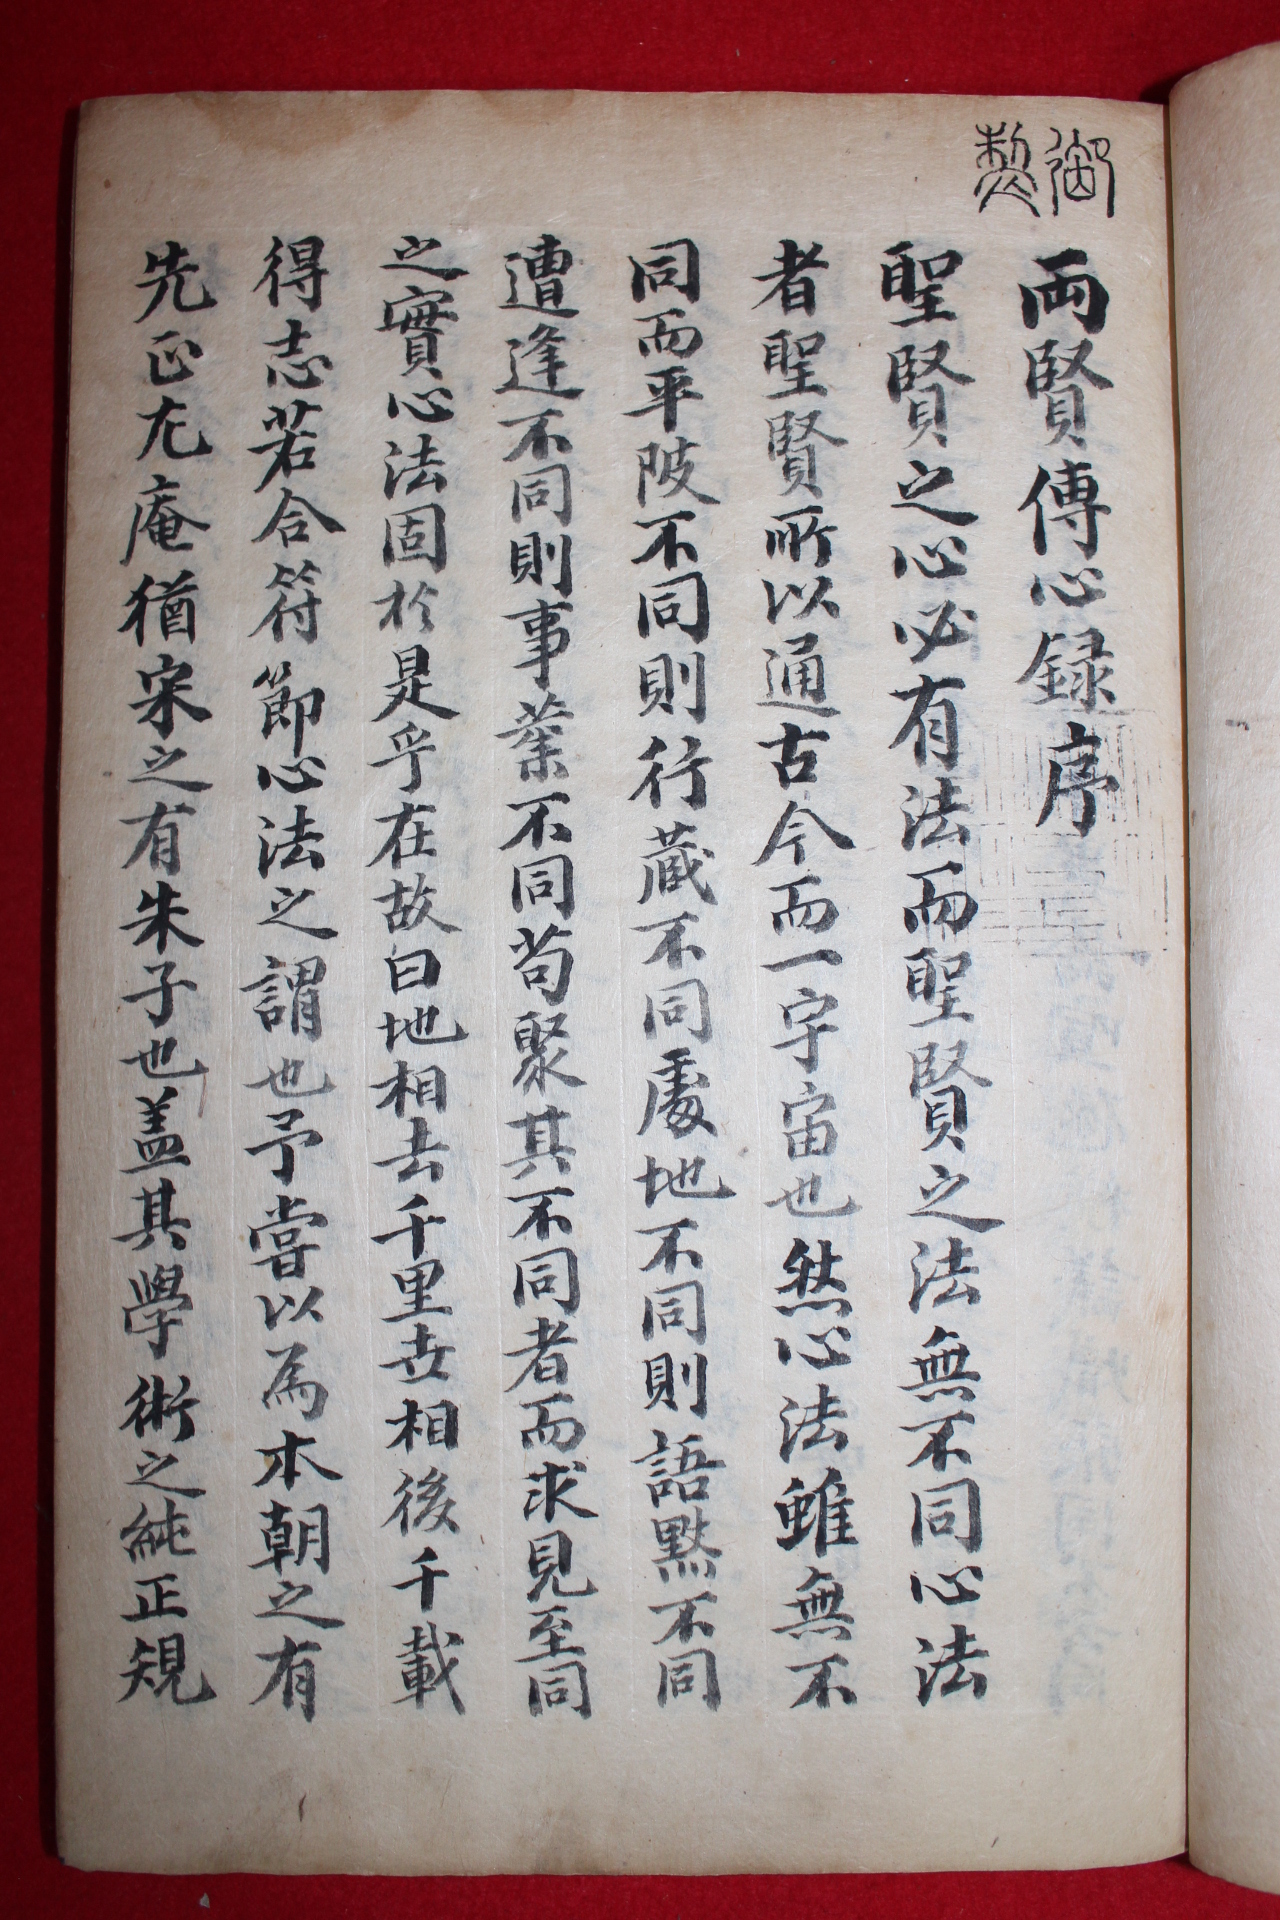 御製
両賢傳心録序
聖賢之心必有法而聖賢之法無不同心法
者聖賢所以通古今而一宇宙也然心法雖無不
同而平陂不同則行蔵不同處地不同則語黙不同
遭逢不同則事業不同苟聚其不同者而求見至同
之實心法固於是乎在故曰地相去千里世相後千載
得志若合符節心法之謂也予嘗以為本朝之有
先正尤庵猶宋之有朱子也盖其學術之純正規